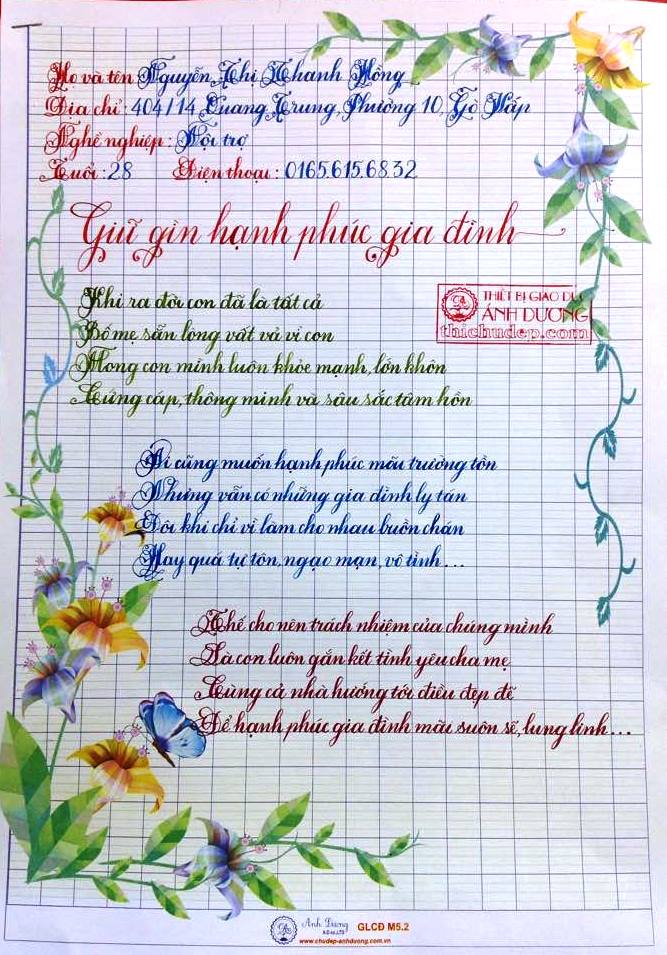 Họ và tên Nguyễn Thị Thanh Hồng
Địa chỉ: 404/14 Quang Trung, Phường 10, Gò Vấp
Nghề nghiệp: Nội trợ
Tuổi: 28 Điện thoại: 0165.615.68.32
Giữ gìn hạnh phúc gia đình
THIẾT BỊ GIÁO DỤC
ÁNH DƯƠNG
thichudep.com
Khi ra đời con đã là tất cả
Bố mẹ sẵn lòng vất vả vì con
Mong con mình luôn khỏe mạnh, lớn khôn
Cứng cáp, thông minh và sâu sắc tâm hồn
Ai cũng muốn hạnh phúc mãi trường tồn
Nhưng vẫn có những gia đình ly tán
Đôi khi chỉ vì làm cho nhau buồn chán
Hay quá tự tôn, ngạo mạn, vô tình...
Thế cho nên trách nhiệm của chúng mình
Là con luôn gắn kết tình yêu cha mẹ
Cùng cả nhà hướng tới điều đẹp đẽ
Để hạnh phúc gia đình mãi suôn sẻ, lung linh...
Ánh Dương GLCĐ M5.2
www.chudep-anhduong.com.vn